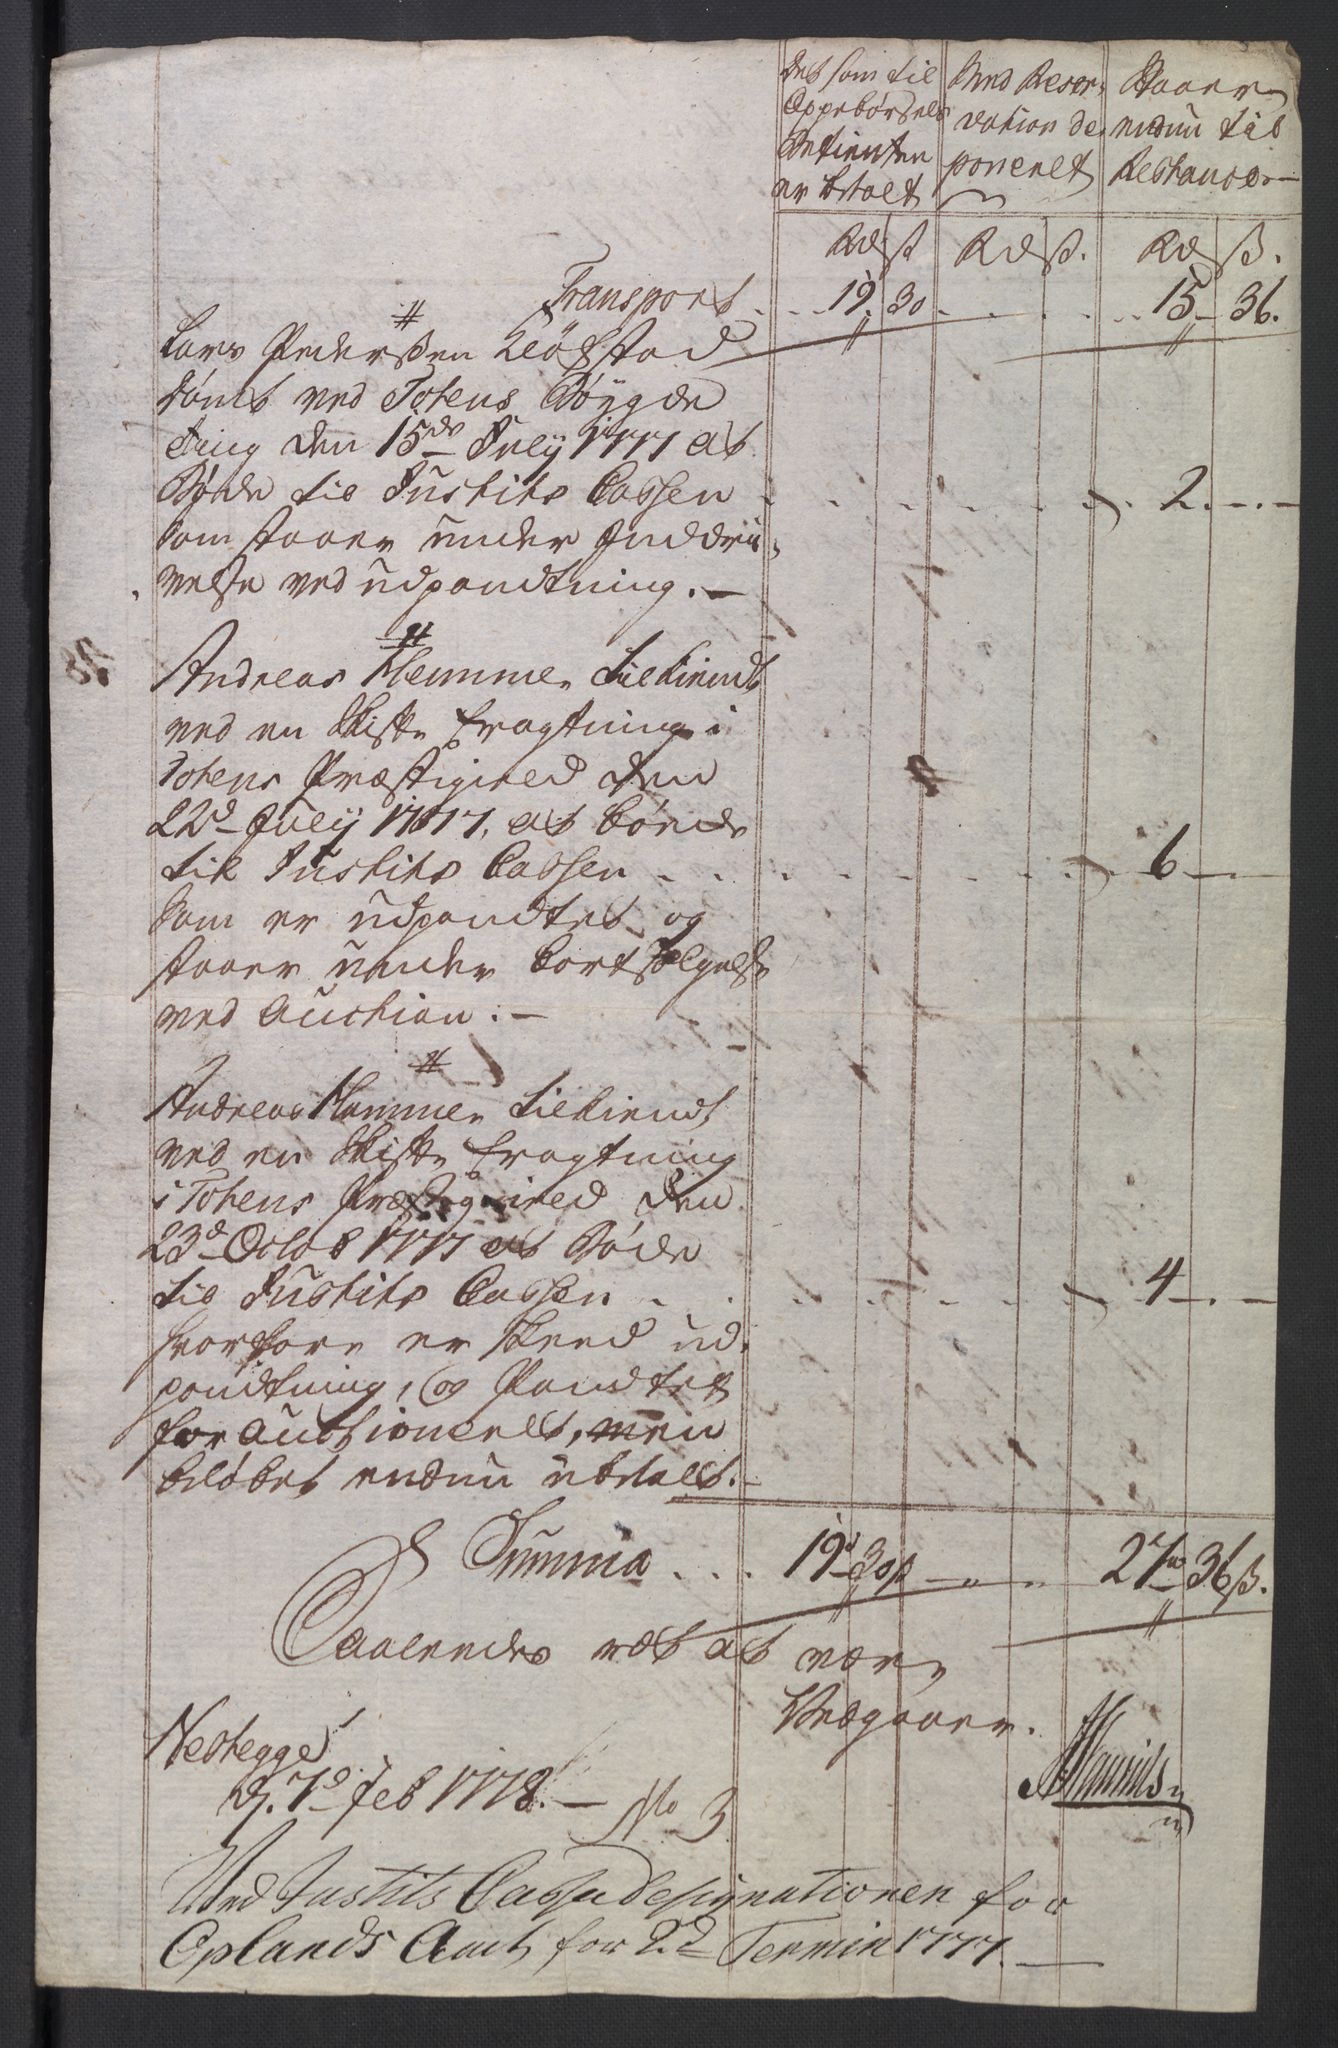 det som til
Oppebørsels
Betienten
er betalt
Med Reser-
vation de-
poneret
Staaer
endnu til
Restance.
Rd ß
Rd ß.
Rd ß.
Transport . . . 19. 30. . . . . . 15 - 36.
Lars Pedersen
dömt ved Totens Böygde
Ting den 15de July 1777 at
Bøde til Justits Cassen . . . . . . 2. - . -
som staaer under Inddri-
velse ved udpandtning. -
Andreas Hemmer tilkiendt
ved en Skifte fragtning i
Totens Præstegield den
22d July 1777, at bøde
til Justits Cassen . . . . . . 6 -
som er udpandtet og
staaer under bortsælgelse
ved Auction. -
Andreas Hammer tilkiendt
ved en Skifte fragtning
i Totens Præstegield den
23d Octob 1777 at Bøde
til Justits Cassen . . . . . . 4 - . -
hvorfore er skeed ud-
pandtning, og Pandtet
for Auctioneret, men
beløbet endnu ubetalt. -
Summa . . . 19 30ß - " - 27 36ß.
Saaledes ret at være
Vedgaaer.
Nestegge
d. 7d Feb 1778. -
No 3
Ved Justits Cassa designationen for
Oplands Amt for 2d Termin 1777. -